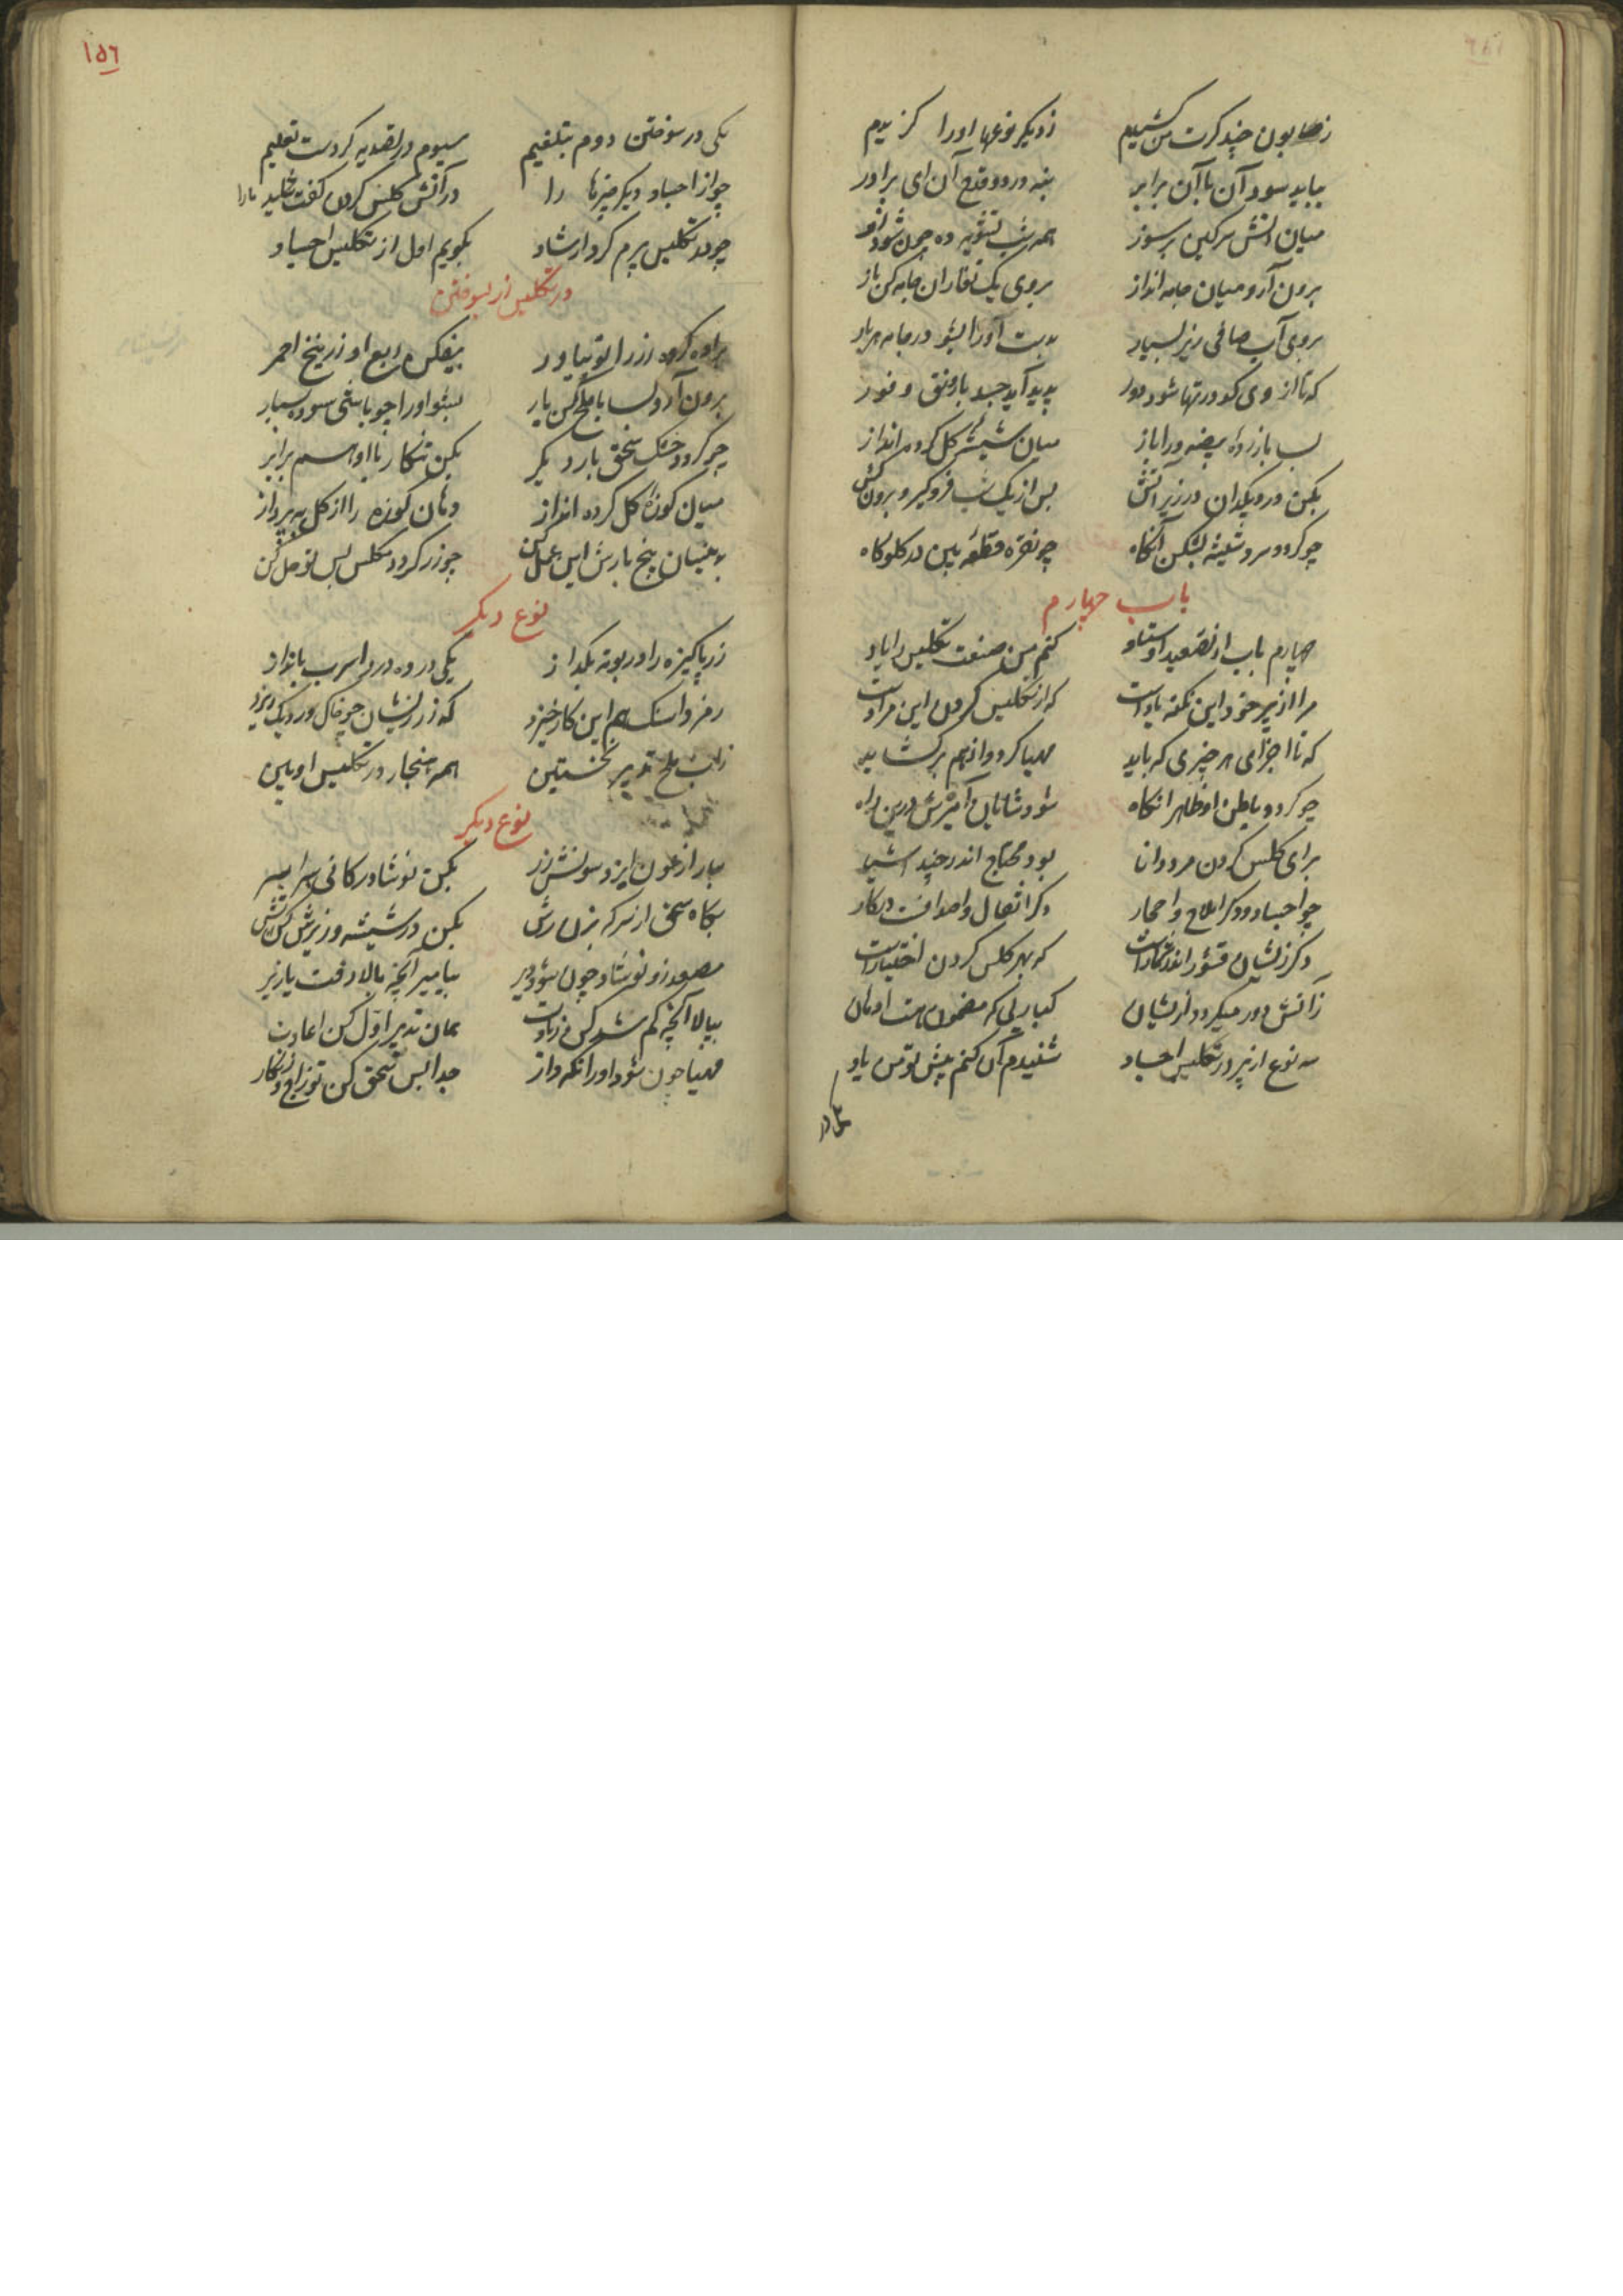 ز صابون چند کرت من کشیدم ز دیگر نوعها اورا گزیدم
بباید سود آن با آن برابر بنه در دو قدح آن ای برادر
میان آتش سرکین برسوز همه شب تشویه ده چون شود روز
برون آر و میان جامه انداز بروی یک تغار آن جامه کن باز
بروی آب صافی ریز بسیار بدست اورا بشو در جامه هر بار
که تا از وی کدورتها شود دور پدید آید جسد با رونق و نور
پس با زرده بیضه ورا باز میان شیشه کل کرده انداز
بکن در دیکدان در زیر آتش پس از یک شب فروگیر و برون کش
چو گردد سرد شیشه بشکن آنگاه چو نقره قطعه بین در گلوگاه
باب چهارم
چهارم باب از تصعید استاد کنم من صنعت تکلیس را یاد
مرا از پیر خود این نکته یادست که از تکلیس کردن این مرادست
که تا اجزای هر چیزی که باید مهیا گردد از هم برگشاید
چو گردد باطن او ظاهر آنگاه شود شایان آمیزش درین راه
برای کلس کردن مرد دانا بود محتاج اندر چند اشیا
چو اجساد و دگر املاح و احجار دگر اثفال و اصداف در کار
دگر زیشان قشور اندر شمارست که بهر کلس کردن اختیارست
ز آتش دور میگردد ازیشان
سه نوع از پیر در تکلیس اجساد شنیدم آن کنم پیش تو من یاد
یکی در
۱۵۶
یکی در سوختن دوم بتلغیم سیوم در تصدیه کردست تعلیم
چو از اجساد دیگر چیزها را در آتش کلس کردن گفت شاید مارا
چو در تکلیس پیرم کرد ارشاد بگویم اول از تکلیس اجساد
در تکلیس زر بسوختن
براده کرده زر را تو بیاور بیفکن ربع او زرنیخ احمر
برون آر و بسا با ملح کن یار بشو اورا چو باشی سوده بسیار
چو گردد خشک سحق بار دیگر بکن تنکار با او هم برابر
میان کوزه کل کرده انداز دهان کوزه را از کل بپرداز
بدینسان پنج بارش این عمل کن چو زر گردد مکلس پس تو حل کن
نوع دیگر
زر پاکیزه را در بوته بگداز یکی در ده درو اسرب بانداز
همه هنجار در تکلیس او بین
نوع دیگر
بیار از عون ایزد سونش زر بکن نوشادر کانی برابر
بگاه سحق از سرکه بزن رش بکن در شیشه و زیرش کن آتش
مصعد زو نوشادر چون شود زیر بیامیز آنچه بالا رفت با زیر
ببالا آنچه کم شد کن زیادت همان تدبیر اول کن اعادت
مهیا چون شود اورا نگه دار جدا پس سحق کن تو زاج و زنگار